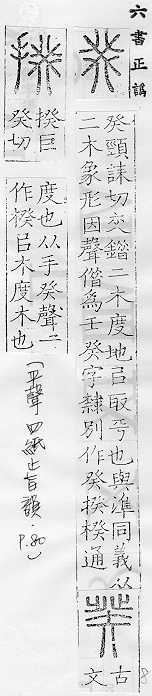 六書正譌
癸頸誄切交錯二木度地㠯取平也與準同義从
二木象形因聲借為壬癸字隸別作癸揆楑通
古
文
揆巨
癸切
度也从手癸聲二
作楑㠯木度木也
(平聲四紙止旨韻·P.80)
8